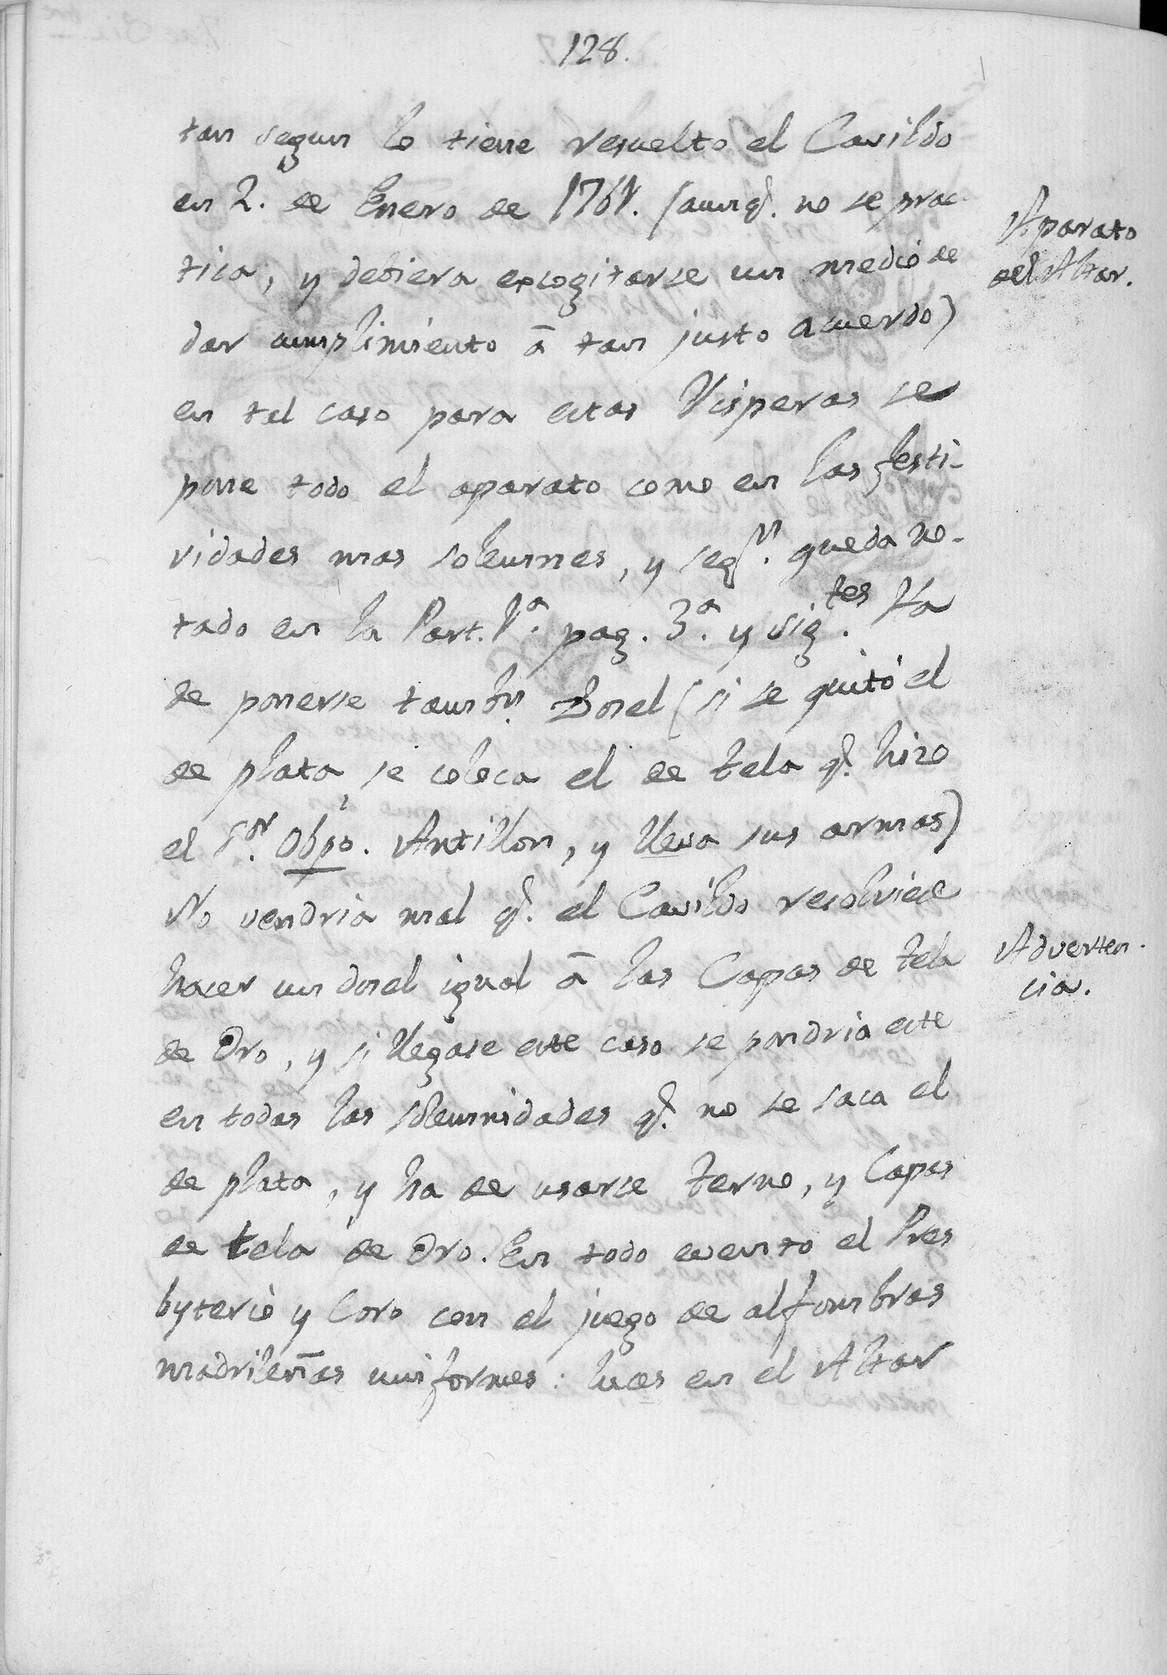 128.
tan segun lo tiene resuelto el Cavildo
en 2. de Enero de 1761. (aunq. no se prac
Aparato
del Altar.
tica, y debiera excogitarse un medio de
dar cumplimiento â tan justo acuerdo)
en tal caso para estas Visperas se
pone todo el aparato como en las festi-
vidades mas solemnes, y segn. queda no-
tado en la Part. 1.ª pag. 3.ª y sigtes. Ha
de ponerse tambn. Dosel (si se quitó el
de plata, se coloca el de tela q. hizo
el Sor. Obpo. Antillon, y lleva sus armas)
No vendria mal q. el Cavildo resolviese
Adverten-
cia.
hacer un dosel igual â las Capas de tela
de Oro, y si llegase este caso se pondria este
en todas las solemnidades q. no se saca el
de plata, y ha de usarse terno, y Capas
de tela de Oro. En todo evento el Pres
byterio y Coro con el juego de alfombras
madrileñas uniformes: luces en el Altar